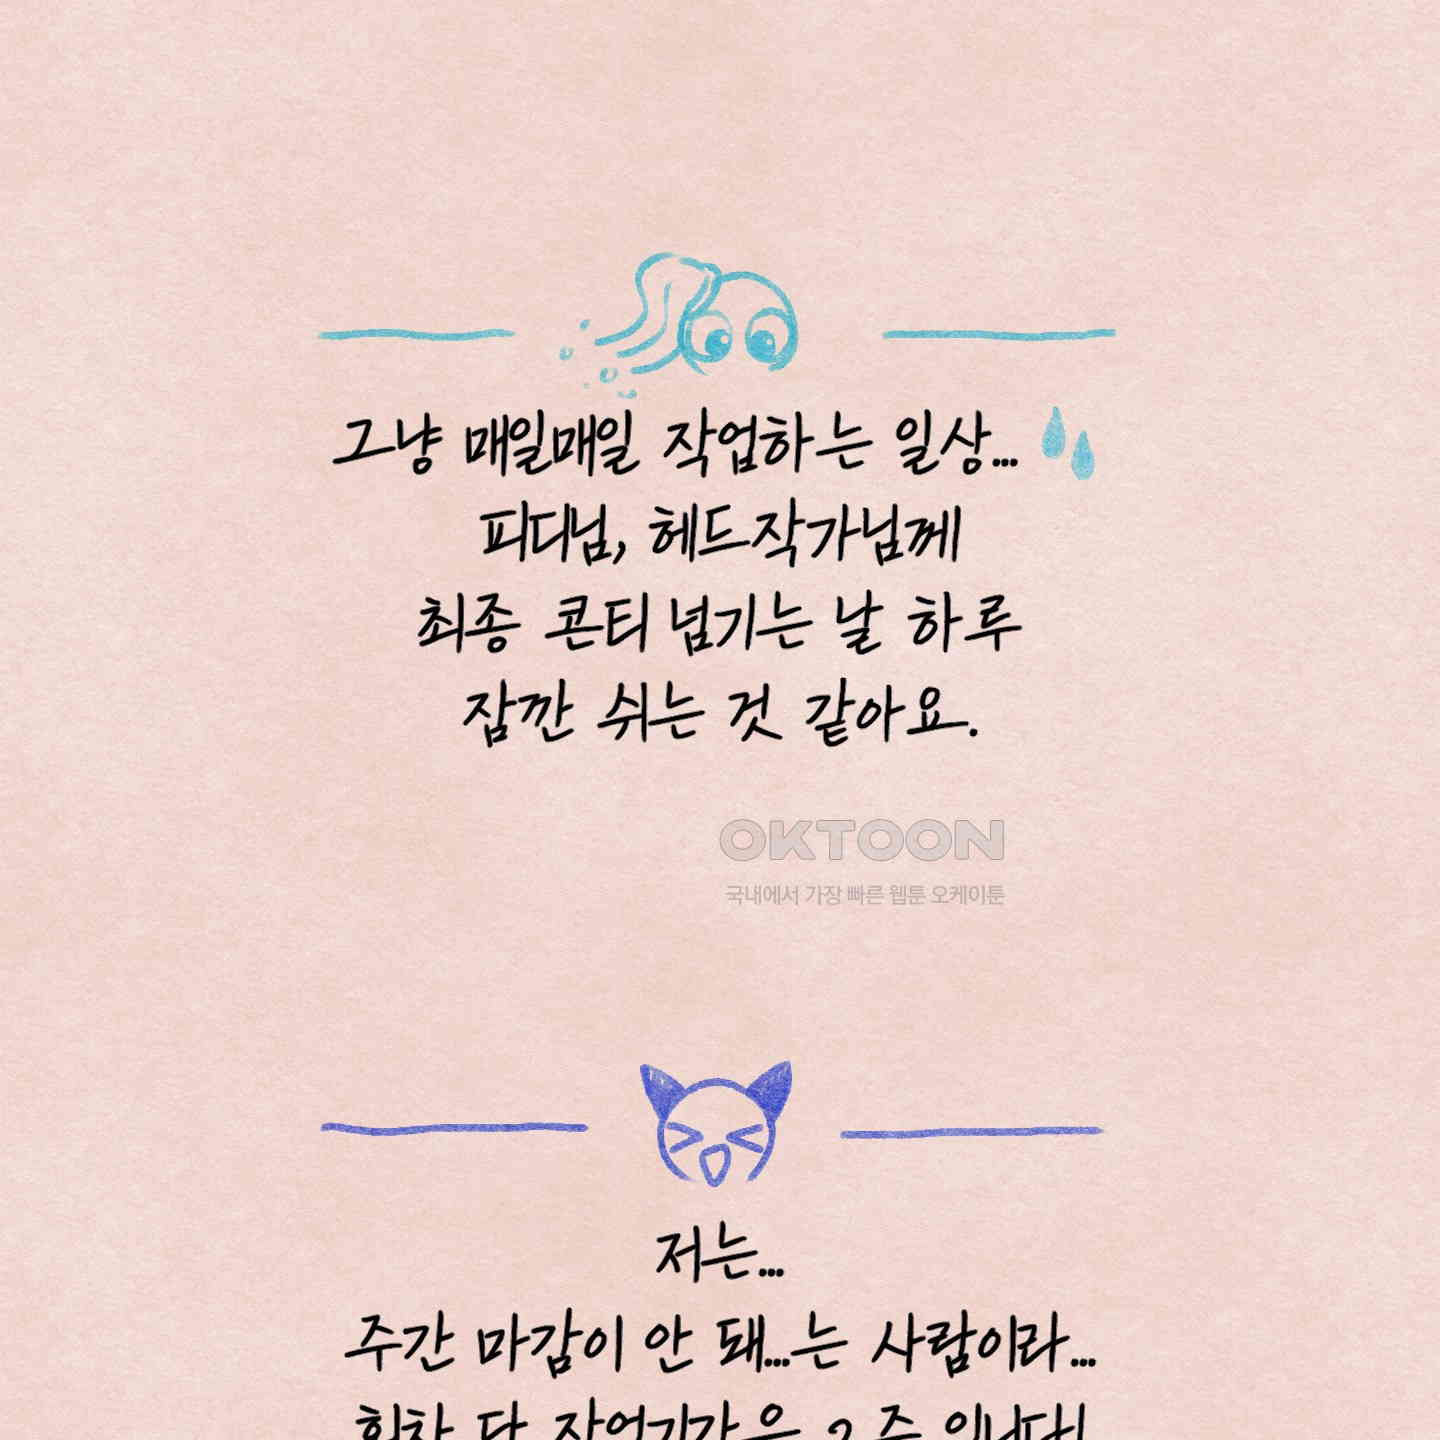 그냥 매일매일 작업하는 일상...
피디님, 헤드작가님께
최종 콘티 넘기는 날 하루
잠깐 쉬는 것 같아요.
OKTOON
국내에서 가장 빠른 웹툰 오케이툰
저는...
주간 마감이 안 돼...는 사람이라...
회차 당 작업기간은 2주 입니다!